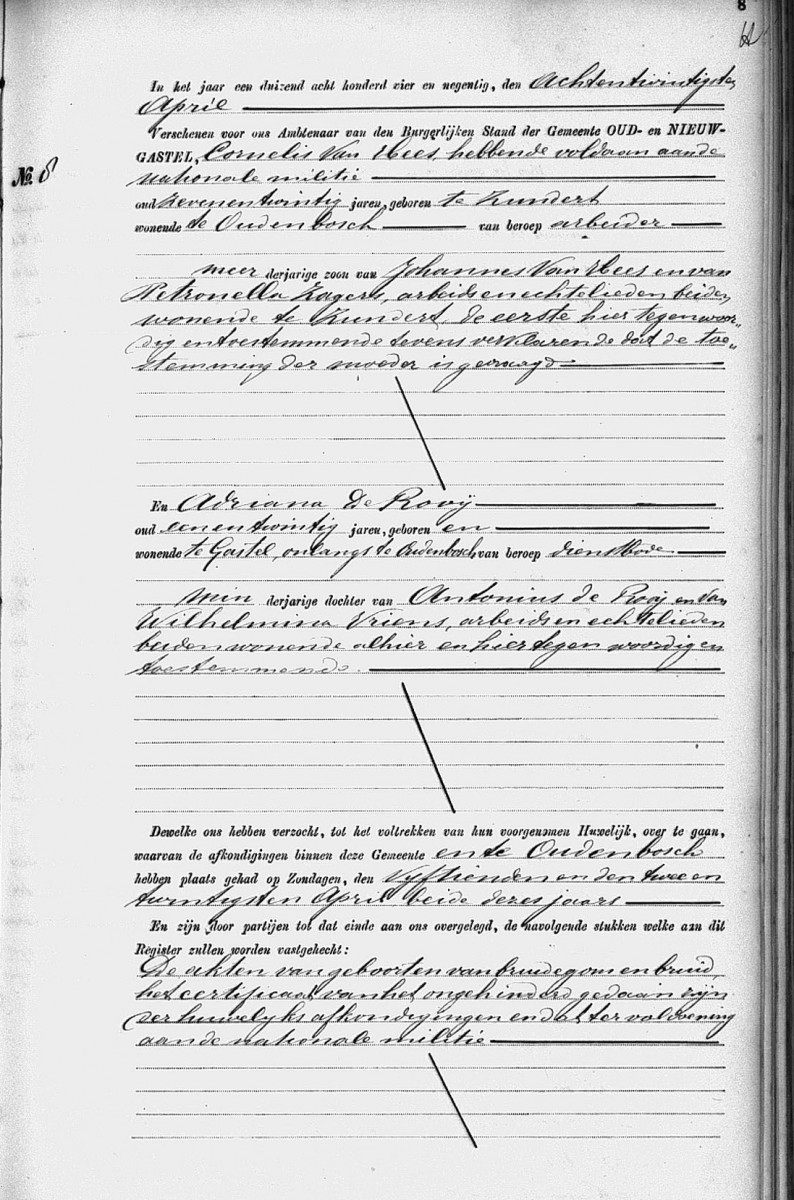 8
In het jaar een duizend acht honderd vier en negentig, den Achtentwintigsten
April
Verschenen voor ons Ambtenaar van den Burgerlijken Stand der Gemeente OUD- en NIEUW-
No. 8
GASTEL, Cornelis Van Hees, hebbende voldaan aan de
nationale militie
oud zevenentwintig jaren, geboren te Zundert
wonende te Oudenbosch van beroep arbeider
meer derjarige zoon van Johannes Van Hees en van
Petronella Zagers, arbeidsen echtelieden beiden
wonende te Zundert, de eerste hier tegenwoor-
dig en toestemmende tevens verklarende dat de toe-
stemming der moeder is gevraagd
En Adriana De Rooij
oud eenentwintig jaren, geboren en
wonende te Gastel, onlangs te Oudenbosch, van beroep dienstbode
min derjarige dochter van Antonius de Rooij en van
Wilhelmina Vriens, arbeidsen echtelieden
beiden wonende alhier en hier tegenwoordig en
toestemmende.
Dewelke ons hebben verzocht, tot het voltrekken van hun voorgenomen Huwelijk, over te gaan,
waarvan de afkondigingen binnen deze Gemeente en te Oudenbosch
hebben plaats gehad op Zondagen, den Vyftienden en den twee en
twintigsten April beide dezes jaars
En zijn door partijen tot dat einde aan ons overgelegd, de navolgende stukken welke aan dit
Register zullen worden vastgehecht:
De akten van geboorten van bruidegom en bruid,
het certificaat van het ongehinderd gedaan zijn
der huwelyks afkondigingen en dat ter voldoening
aan de nationale militie